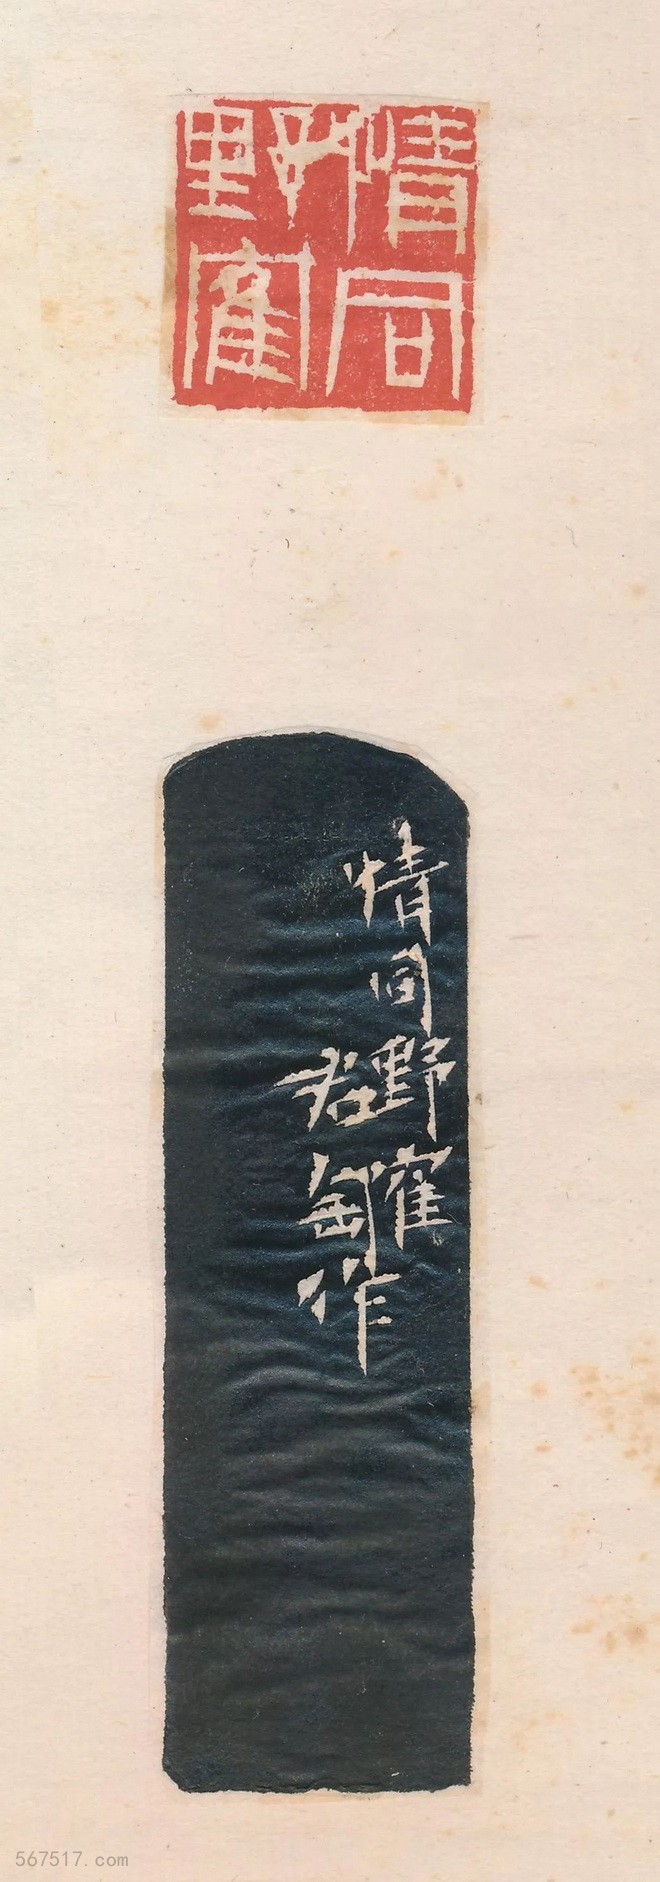 情同
野寉
情同野寉
君匋作
567517.com